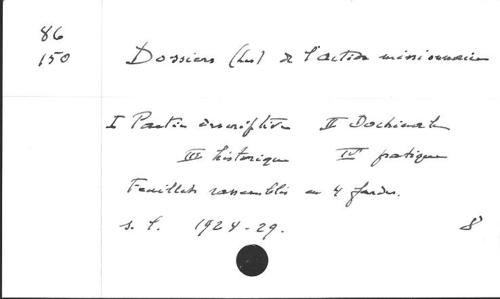 86
150
Dossiers (Les) de l'action missionnaire
I Partie descriptive II Doctrinale
III historique IV pratique
Feuillets rassemblés en 4 fardes.
s. l. 1924-29. 8